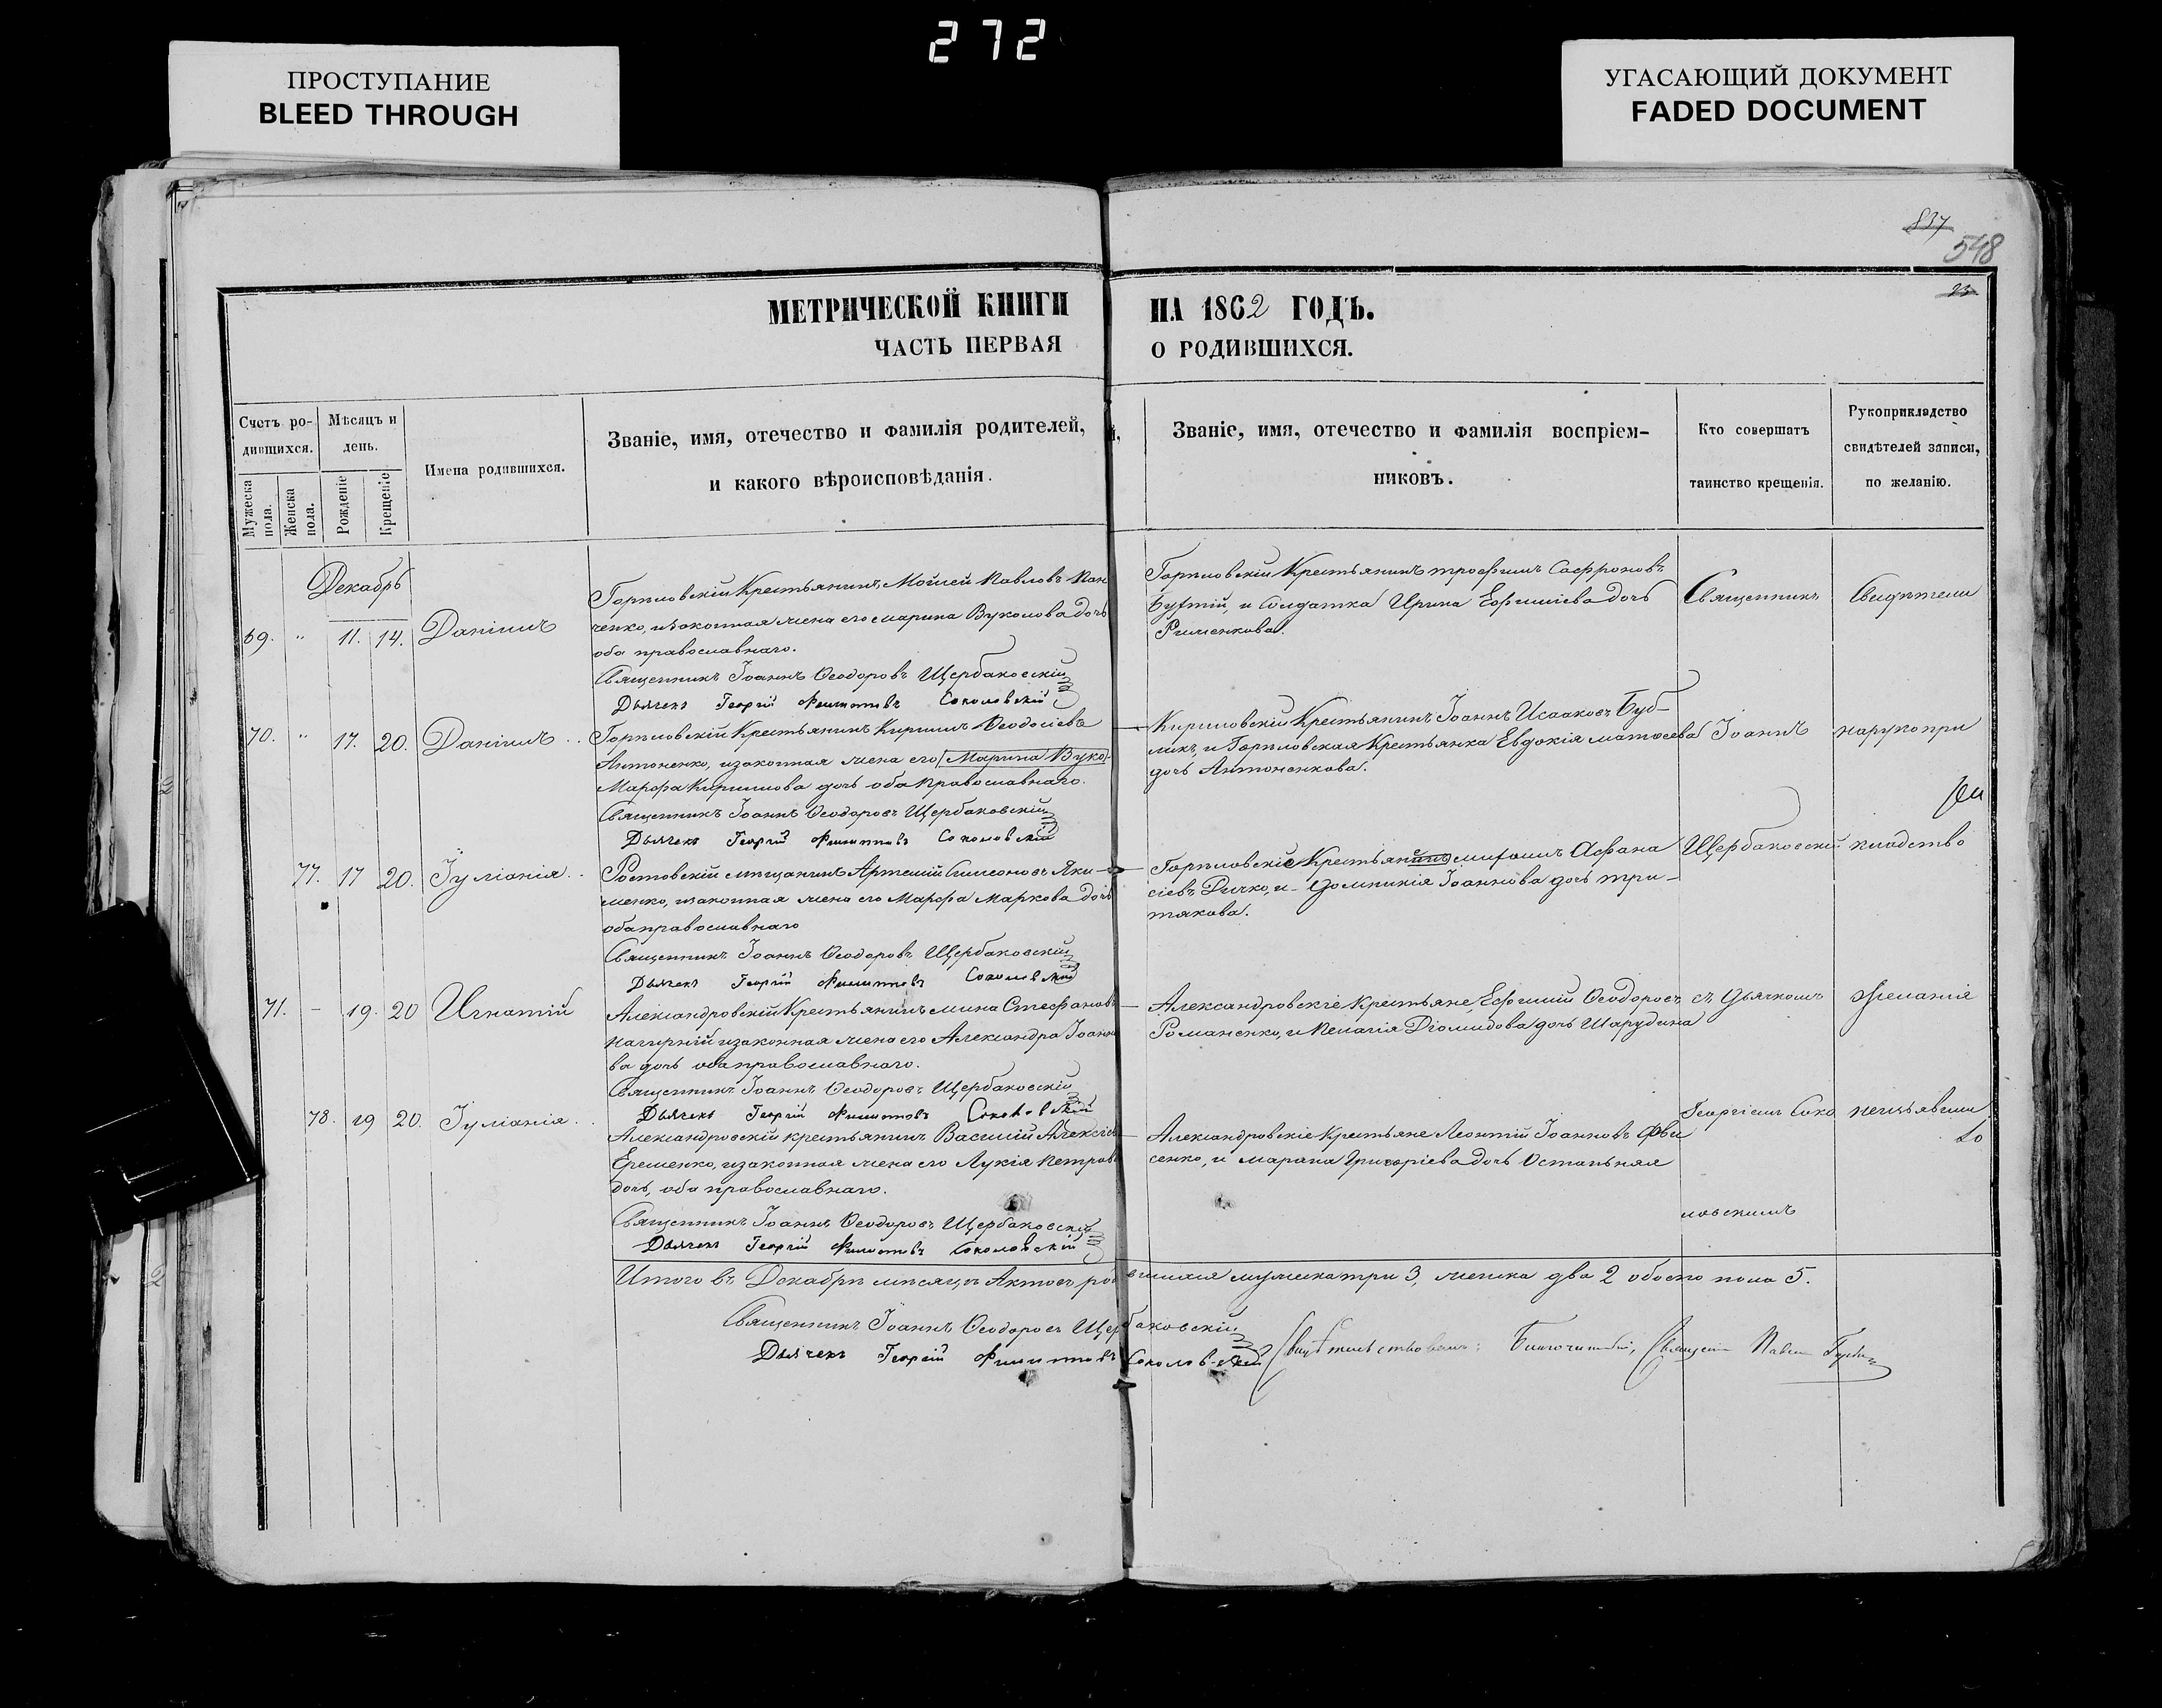 272
ПРОСТУПАНИЕ
BLEED THROUGH
УГАСАЮЩИЙ ДОКУМЕНТ
FADED DOCUMENT
837
548
23
МЕТРИЧЕСКОЙ КНИГИ НА 1862 ГОДЪ.
ЧАСТЬ ПЕРВАЯ О РОДИВШИХСЯ.
Счетъ родившихся.
Мужеска пола.
Женска пола.
Мѣсяцъ и день.
Рожденіе
Крещеніе
Имена родившихся.
Званіе, имя, отечество и фамилія родителей,
и какого вѣроисповѣданія.
Званіе, имя, отечество и фамилія воспріем-
никовъ.
Кто совершалъ
таинство крещенія.
Рукоприкладство
свидѣтелей записи,
по желанію.
Декабрь
69. " 11. 14. Даніилъ
Крестьянинъ Мойсей Павловъ Пан
ченко, изаконная жена его Марина Вуколова дочь
оба православнаго.
Священникъ Іоаннъ Ѳеодоровъ Щербаковскій
Дьячекъ Георгій Филиповъ Соколовскій
Крестьянинъ Трофимъ Сафроновъ
и Солдатка Ирина Ефиміева дочь
Священникъ
Свидѣтели
70. " 17. 20. Даніилъ
Крестьянинъ Кириллъ Ѳеодосіевъ
Антоненко, изаконная жена его Марина Вуко
Марфа Кирилова дочь оба православнаго.
Священникъ Іоаннъ Ѳеодоровъ Щербаковскій
Дьячекъ Георгій Филиповъ Соколовскій
Кириловскій Крестьянинъ Іоаннъ Исааковъ Буб-
ликъ, и Крестьянка Евдокія Матѳеева
дочь Антоненкова.
Іоаннъ
нарукопри
77. 17 20. Іуліанія
Ростовскій мѣщанинъ Артемій Симеоновъ Яки-
менко, изаконная жена его Марфа Маркова дочь
оба православнаго
Священникъ Іоаннъ Ѳеодоровъ Щербаковскій
Дьячекъ Георгій Филиповъ Соколовскій
Афана
сіевъ Дичко, и Домникія Іоаннова дочь Три-
тякова.
Щербаковскій
кладство
71. - 19. 20 Игнатій
Александровскій Крестьянинъ Мина Стефановъ
Нагирній изаконная жена его Александра Іоанно
ва дочь оба православнаго.
Священникъ Іоаннъ Ѳеодоровъ Щербаковскій
Дьячекъ Георгій Филиповъ Соколовскій
Александровскіе Крестьяне, Ефимій Ѳеодоровъ
Романенко, и Пелагія Діомидова дочь Шарудина
съ Дьячкомъ
желанія
78. 19 20. Іуліанія
Александровскій крестьянинъ Василій Алексіевъ
Еременко, изаконная жена его Лукія Петрова
дочь, оба православнаго.
Священникъ Іоаннъ Ѳеодоровъ Щербаковскій
Дьячекъ Георгій Филиповъ Соколовскій
Александровскіе Крестьяне Леонтій Іоанновъ
сенко, и Григоріева дочь Остапьняя
Георгіемъ Соко
ловскимъ
неизъявили
Итого въ Декабрѣ мѣсяцѣ Актовъ родившихся мужска три 3, женска два 2 обоего пола 5.
Священникъ Іоаннъ Ѳеодоровъ Щербаковскій
Дьячекъ Георгій Филиповъ Соколовскій
Благочинный, Священ